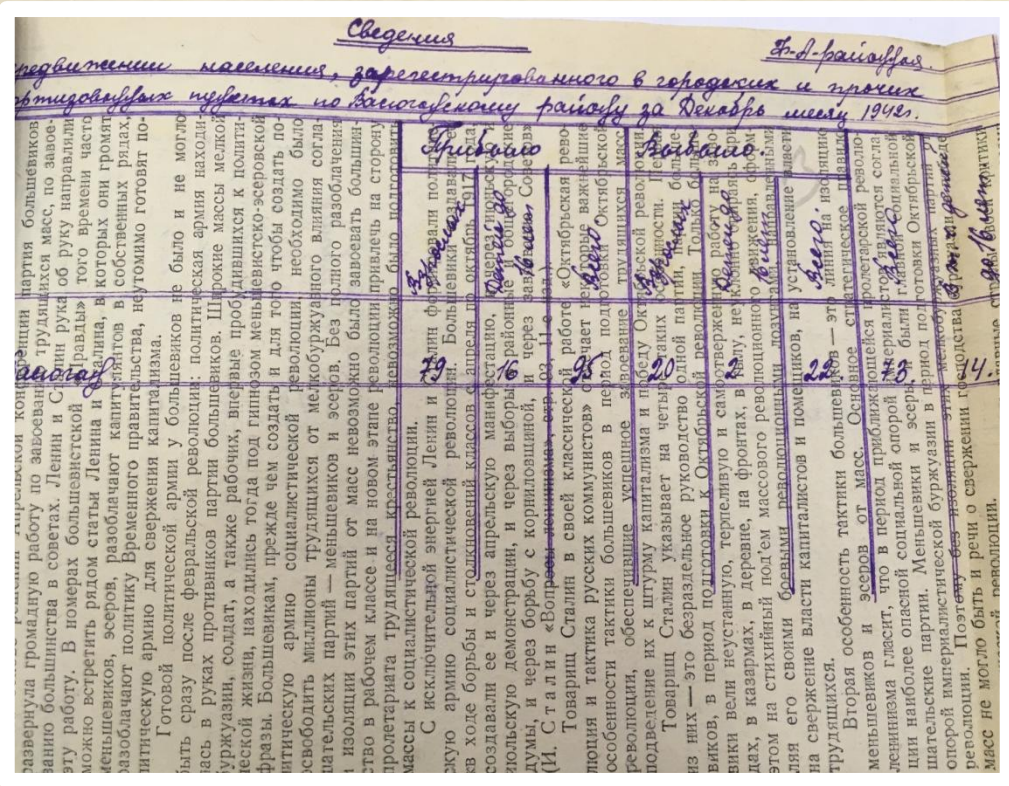 Сведения
населения, зарегестрированного в городских и прочих
пунктах по району за Декабрь месяц 1942г.
Прибыло Выбыло
Взрослых Детей до Всего Взрослых Детей до Всего. Всего до 16
79 16 95 20 2 22. 73. 14.
развернула громадную работу по завоеванию трудящихся масс, по завое-
эту работу. В номерах большевистской
можно встретить рядом статьи Ленина и Сталина, в которых они громят
меньшевиков, эсеров, разоблачают капитулянтов в собственных рядах,
разоблачают политику Временного правительства, неутомимо готовят по-
литическую армию для свержения капитализма.
Готовой политической армии у большевиков не было и не могло
быть сразу после февральской революции: политическая армия находи-
лась в руках противников партии большевиков. Широкие массы мелкой
буржуазии, солдат, а также рабочих, впервые пробудившихся к полити-
ческой жизни, находились тогда под гипнозом меньшевистско-эсеровской
фразы. Большевикам, прежде чем создать
литическую армию социалистической революции, необходимо было
освободить миллионы трудящихся от мелкобуржуазного влияния согла-
шательских партий — меньшевиков и эсеров. Без полного разоблачения
и изоляции этих партий от масс невозможно было завоевать большин-
ство в рабочем классе и на новом этапе революции привлечь на сторону
пролетариата трудящееся крестьянство, невозможно было подготовить
массы к социалистической революции.
С исключительной энергией Ленин и Сталин формировали политиче-
скую армию социалистической революции. Большевики создавали ее
в ходе борьбы и столкновений классов с апреля по октябрь 1917 года,
создавали ее и через апрельскую манифестацию, и через июньскую и
июльскую демонстрации, и через выборы в районные и общегородские
думы, и через борьбу с корниловщиной, и через завоевание Советов»
(И. Сталин «Вопросы ленинизма», стр. 103, 11-е изд.).
Товарищ Сталин в своей классической работе «Октябрьская рево-
люция и тактика русских коммунистов» отмечает некоторые важнейшие
особенности тактики большевиков в период подготовки Октябрьской
революции, обеспечившие успешное завоевание трудящихся масс,
подведение их к штурму капитализма и победу Октябрьской революции.
Товарищ Сталин указывает на четыре
из них — это безраздельное руководство одной партии,
виков, в период подготовки к Октябрьской революции. Только больше-
вики вели неустанную, терпеливую и самоотверженную работу на заво-
дах, в казармах, в деревне, на фронтах,
этом на стихийный под'ем массового революционного движения,
ляя его своими боевыми революционными лозунгами,
на свержение власти капиталистов и помещиков, на установление власти
трудящихся.
Вторая особенность тактики большевиков — это линия на изоляцию
меньшевиков и эсеров от масс. Основное стратегическое правило
ленинизма гласит, что в период приближающейся пролетарской револю-
ции наиболее опасной социальной опорой империалистов являются согла-
шательские партии. Меньшевики и эсеры и были главной социальной
опорой империалистической буржуазии в период подготовки Октябрьской
революции. Поэтому без изоляции этих мелкобуржуазных партий от
масс не могло быть и речи о свержении господства
революции.